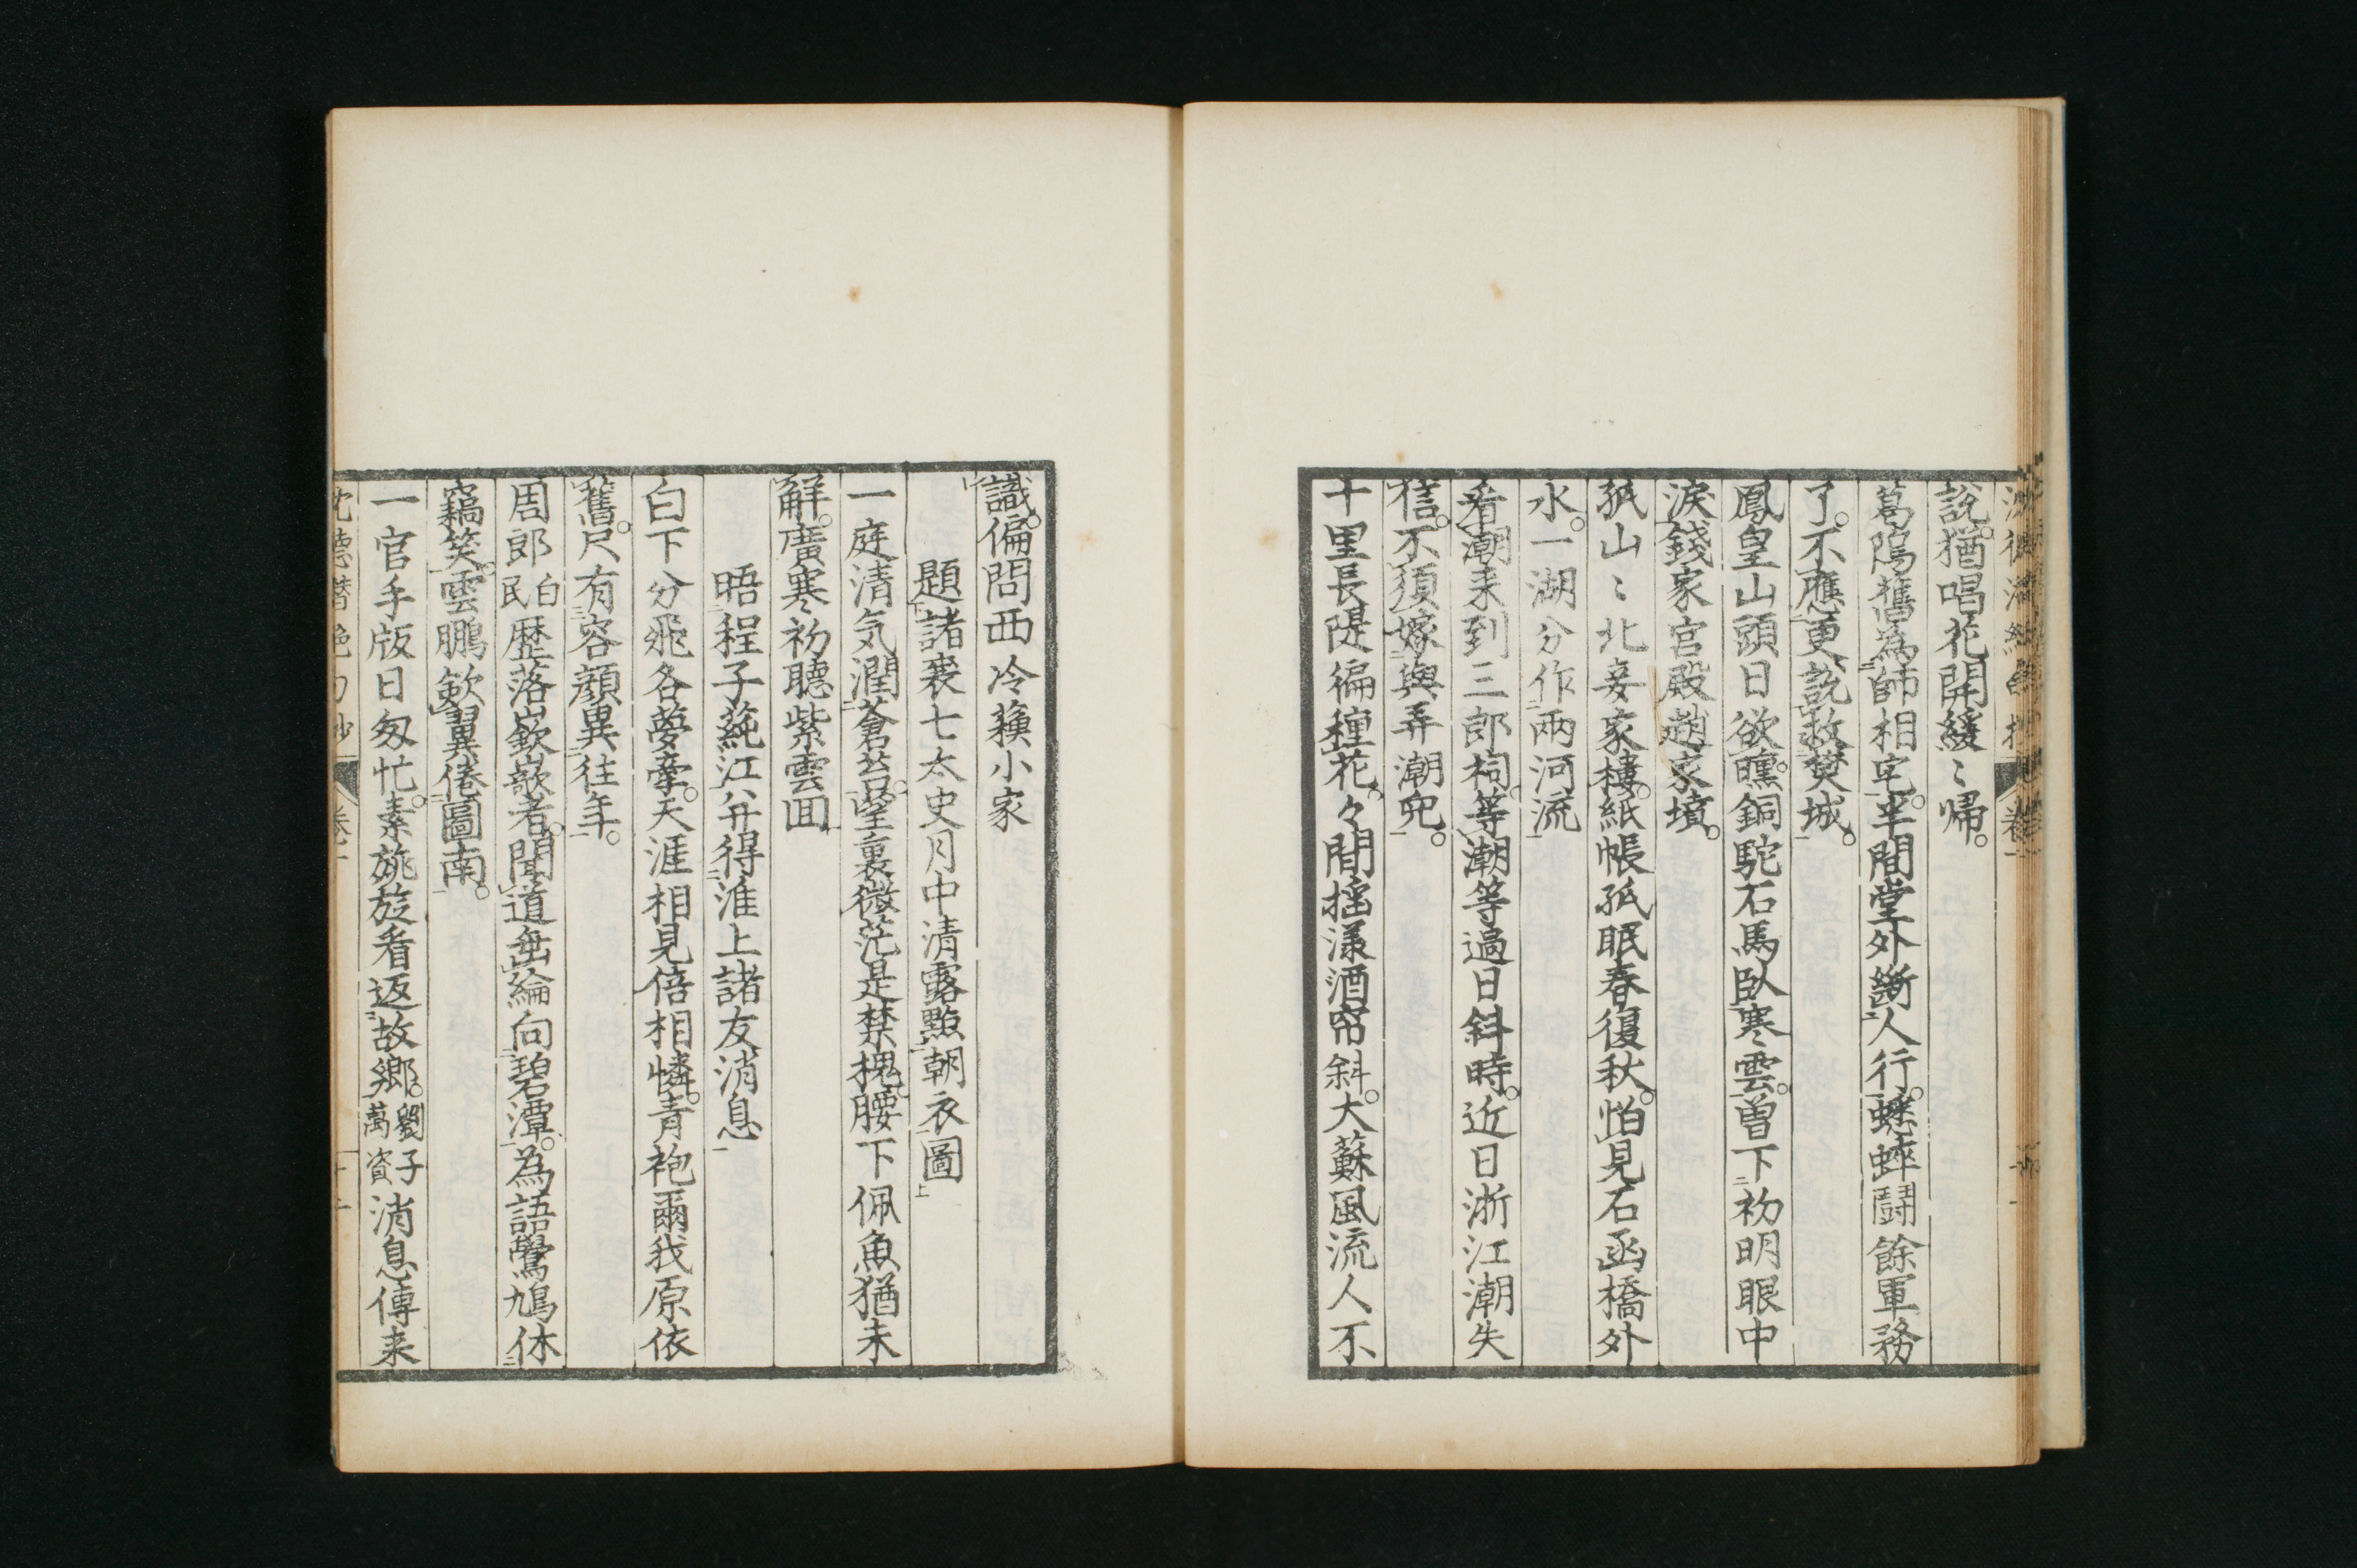 說猶唱花開緩〻歸
葛隝舊為師相宅半間堂外斷人行蟋蟀鬪餘軍務
了不應更說救樊城
鳳皇山頭日欲曛銅駝石馬臥寒雲曽下初明眼中
淚錢家宮殿趙家墳
孤山〻北妾家樓紙帳孤眠春復秋怕見石函橋外
水一湖分作兩河流
看潮来到三郎祠等潮等過日斜時近日浙江潮失
信不須嫁與弄潮兒
十里長隄徧種花々間搖漾酒帘斜大蘇風流人不
識偏問西冷蘓小家
題諸襄七太史月中清露點朝衣圖
一庭清気潤蒼苔望裏微茫是禁槐腰下佩魚猶未
解廣寒初聽紫雲囬
晤程子蒓江八并得淮上諸友消息
白下分飛各夢牽天涯相見倍相憐青袍爾我原依
舊尺有容顏異往年
周郎白民歷落嶔嶔者聞道垂綸向碧潭為語鷽鳩休
竊笑雲鵬斂翼倦圖南
一官手版日匆忙素旐旋看返故鄉劉子萬資消息傳来
沈德潛絶句抄 卷一 十一